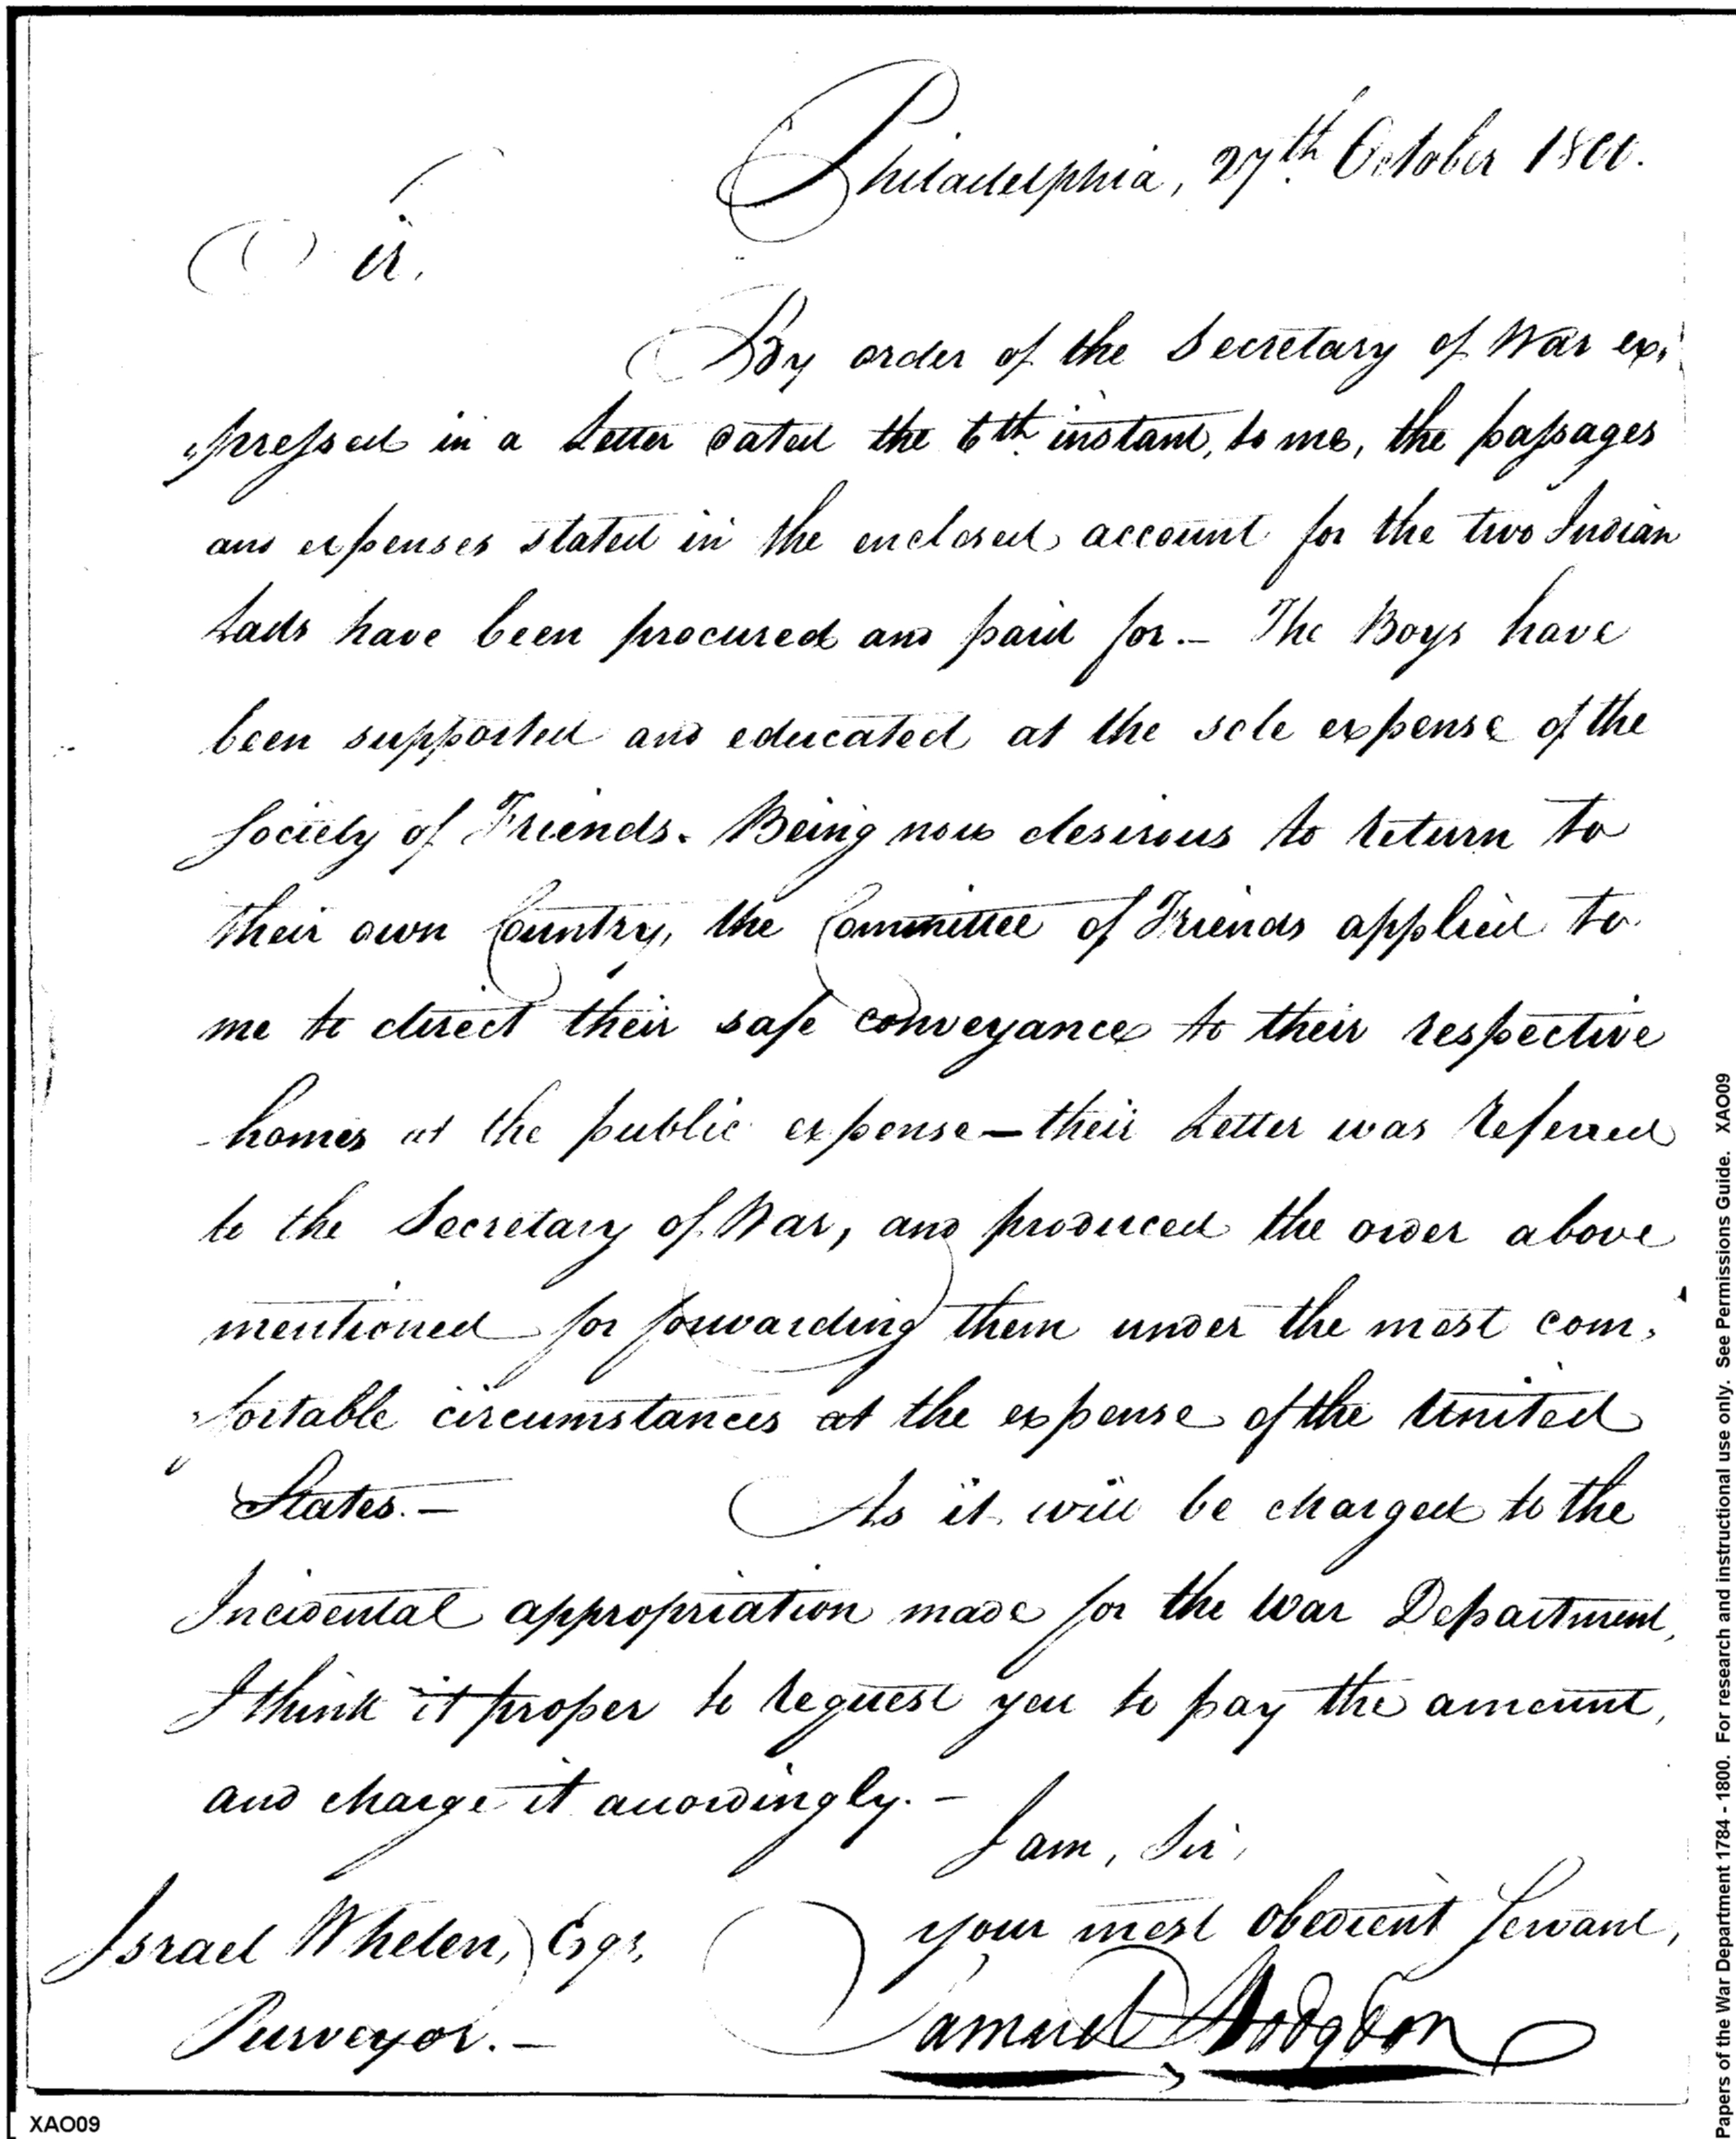 Philadelphia, 27th October 1800.
Sir.
By order of the Secretary of War ex,
,pressed in a Letter dated the 6th instant, to me, the passages
and expenses stated in the enclosed account for the two Indian
Lads have been procured and paid for.— The Boys have
been supported and educated at the sole expense of the
Society of Friends. Being now desirous to return to
their own Country, the Committee of Friends applied to
me to direct their safe conveyance to their respective
homes at the public expense—their Letter was referred
to the Secretary of War, and produced the order above
mentioned for forwarding them under the most com,
,fortable circumstances at the expense of the United
States.— As it will be charged to the
Incidental appropriation made for the War Department,
I think it proper to request you to pay the amount,
and charge it accordingly.—
I am, Sir,
your most obedient Servant,
Israel Whelen, Esqr,
Samuel Hodgdon
Purveyor.—
XAO09
Papers of the War Department 1784 - 1800. For research and instructional use only. See Permissions Guide. XAO09